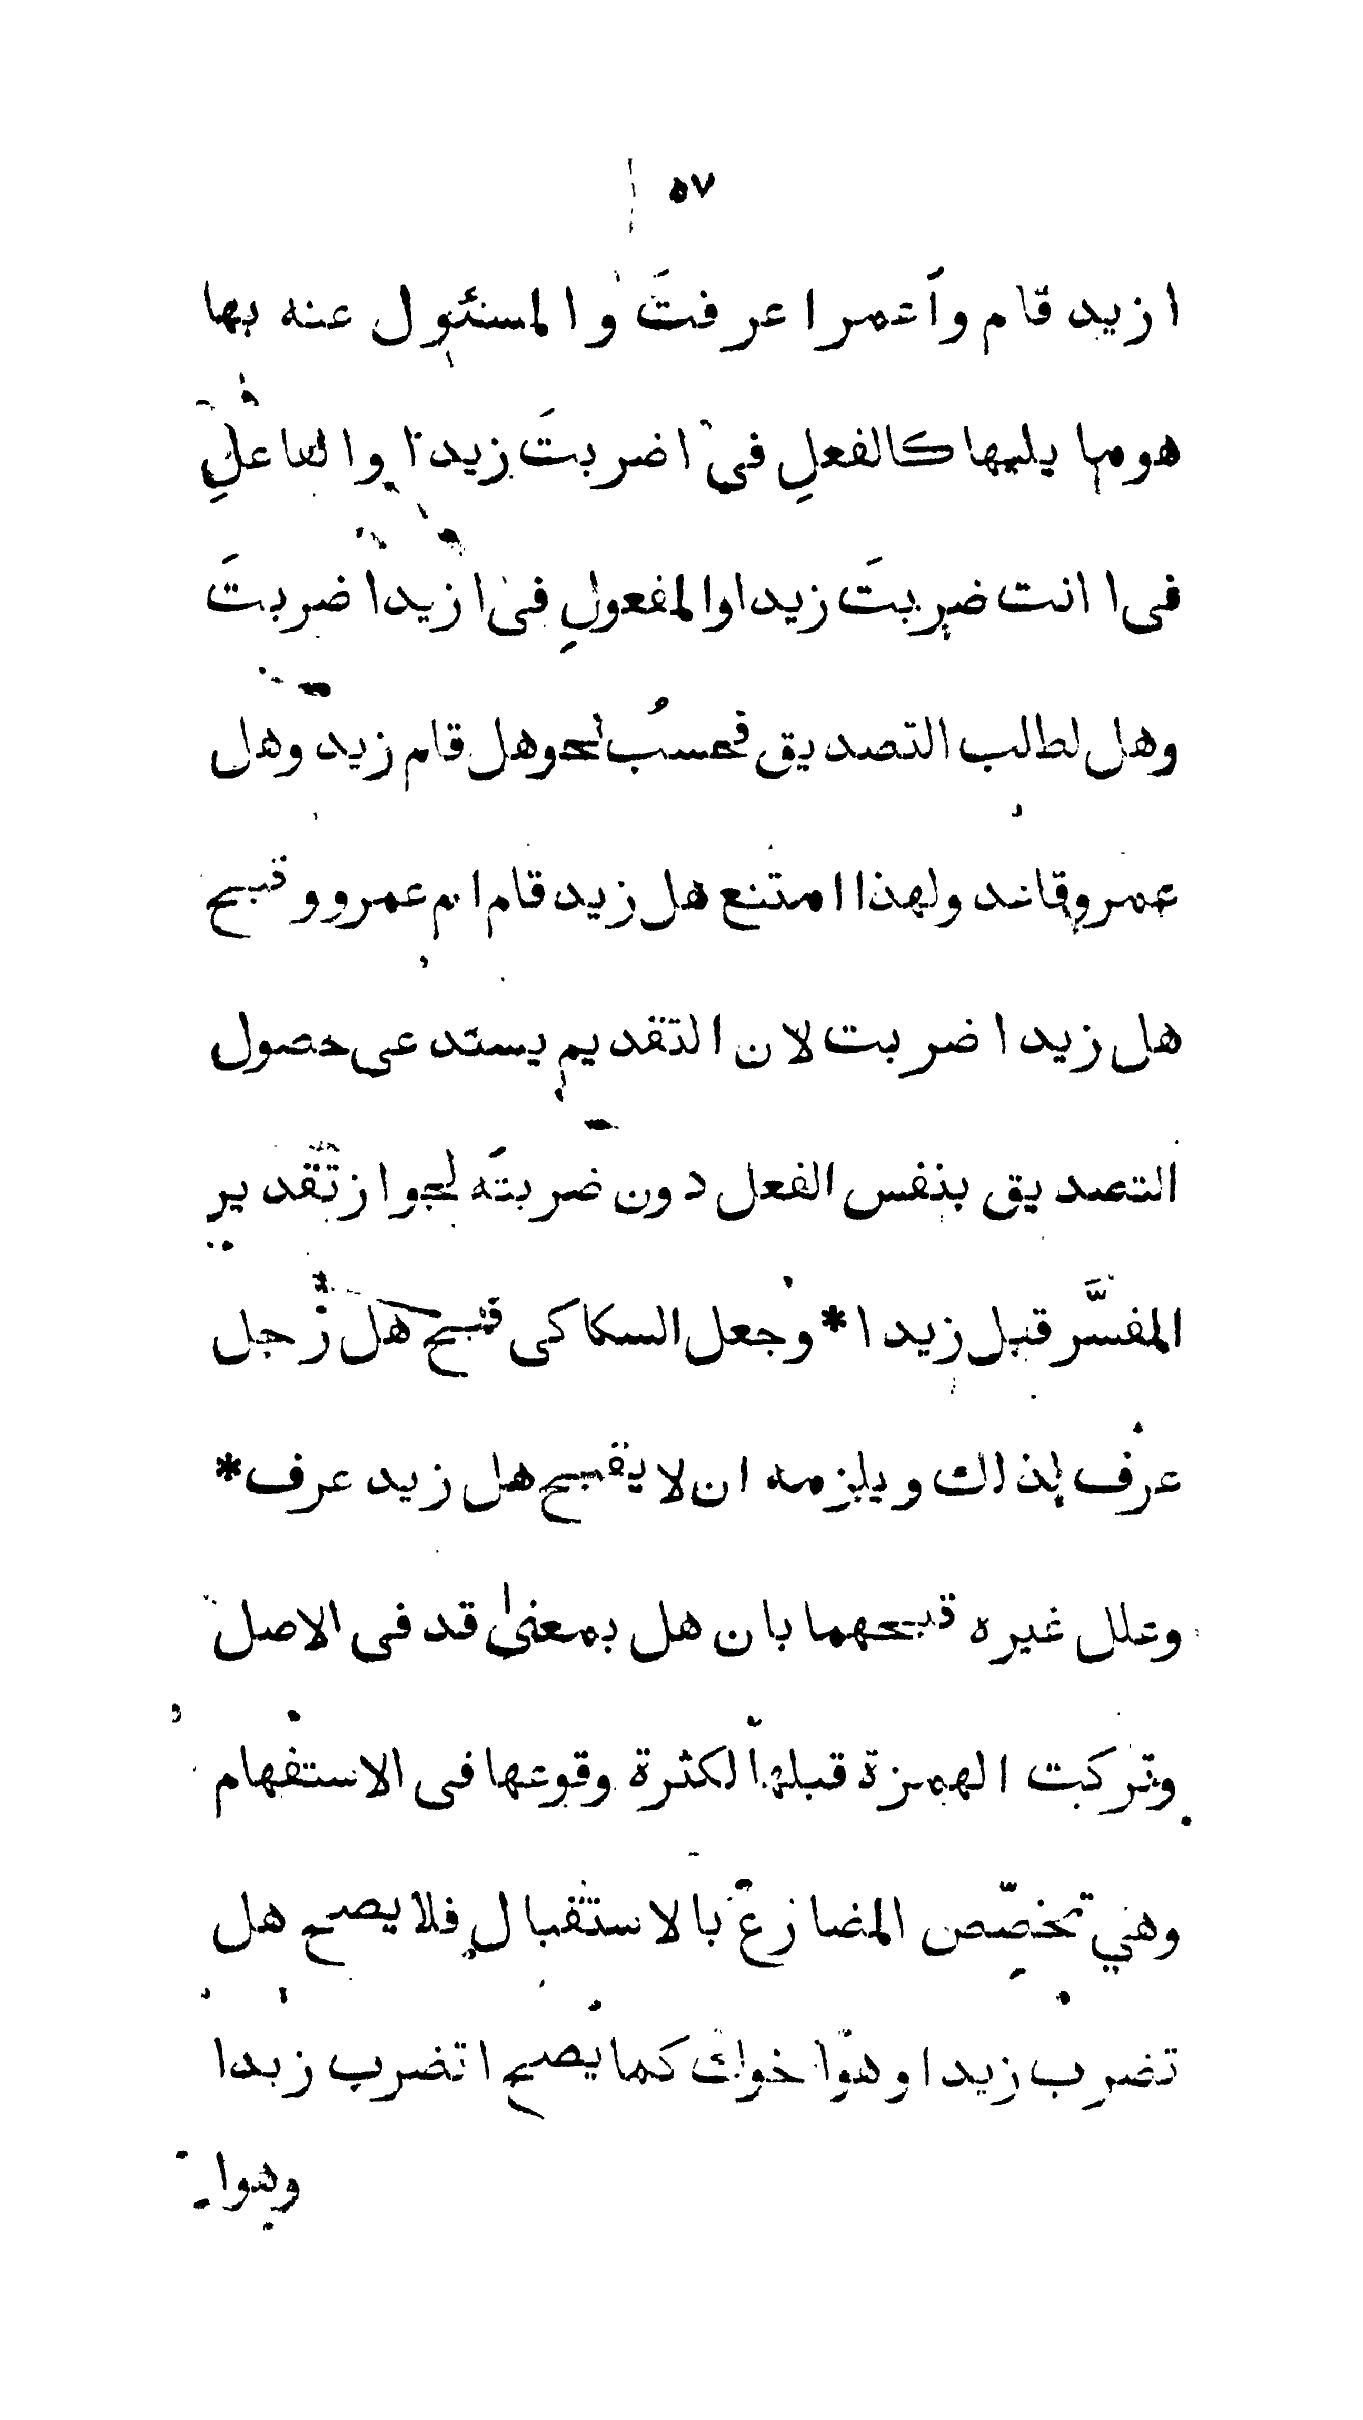 ٥٧
ازيد قام وأعمرا عرفتَ والمسئول عنه بها
هو ما يليها كالفعلِ فى اضربتَ زيدا والفاعلِ
فى اانت ضربتَ زيدا والمفعولِ فى ازيدا ضربتَ
وهل لطالب التصديق فحسبُ نحو هل قام زيد وهل
عمرو قاعد ولهذا امتنع هل زيد قام ام عمرو وقبح
هل زيدا ضربت لان التقديم يستدعى حصول
التصديق بنفس الفعل دون ضربتَه لجواز تقدير
المفسَّر قبل زيدا * وجعل السكاكى قبح هل رجل
عرف لذلك ويلزمه ان لا يقبح هل زيد عرف *
وعلل غيره قبحهما بان هل بمعنى قد فى الاصل
وتركت الهمزة قبلها لكثرة وقوعها فى الاستفهام
وهي تخصِّص المضارع بالاستقبال فلا يصح هل
تضرب زيدا وهو اخوك كما يصح اتضرب زيدا
وهوا